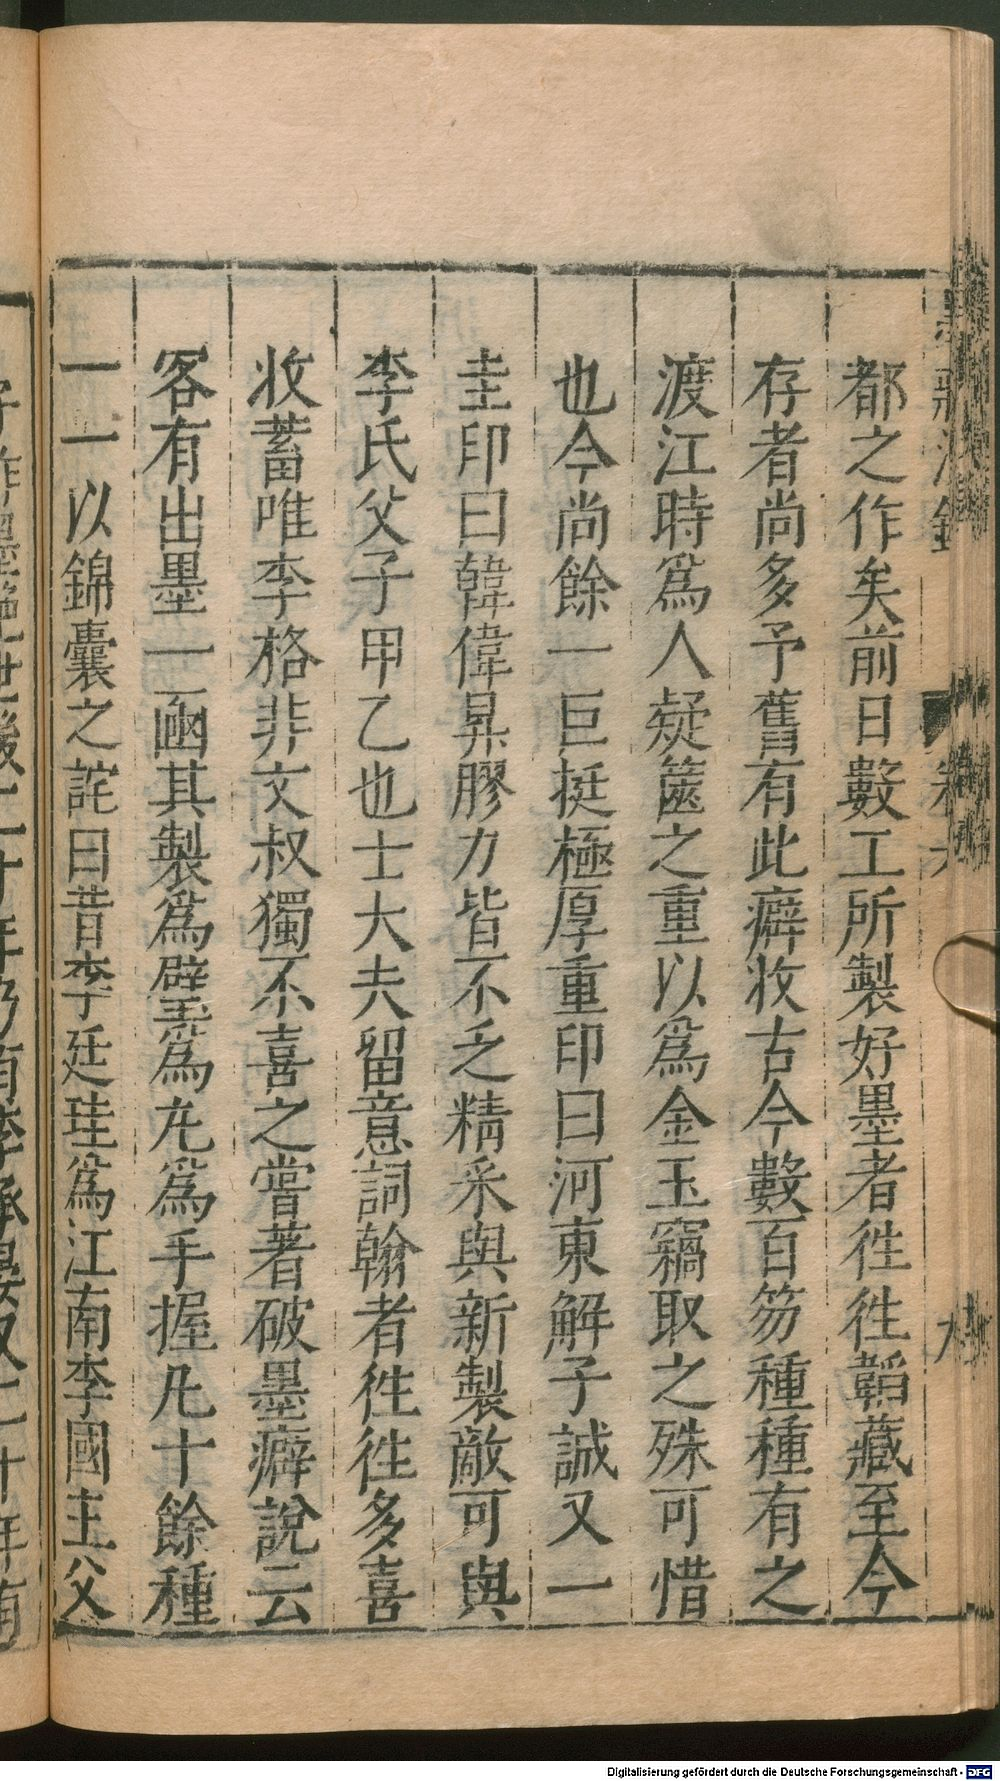 都之作矣前日數工所製好墨者徃徃韜藏至今
存者尚多予舊有此癖收古今數百笏種種有之
渡江時爲人疑篋之重以爲金玉竊取之殊可惜
也今尚餘一巨挺極厚重印曰河東解子誠又一
圭印曰韓偉昇膠力皆不乏精采與新製敵可與
李氏父子甲乙也士大夫留意詞翰者徃徃多喜
收蓄唯李格非文叔獨不喜之嘗著破墨癖說云
客有出墨一凾其製爲璧爲丸爲手握凡十餘種
一一以錦囊之詫曰昔李廷珪爲江南李國主父
Digitalisierung gefördert durch die Deutsche Forschungsgemeinschaft - DFG